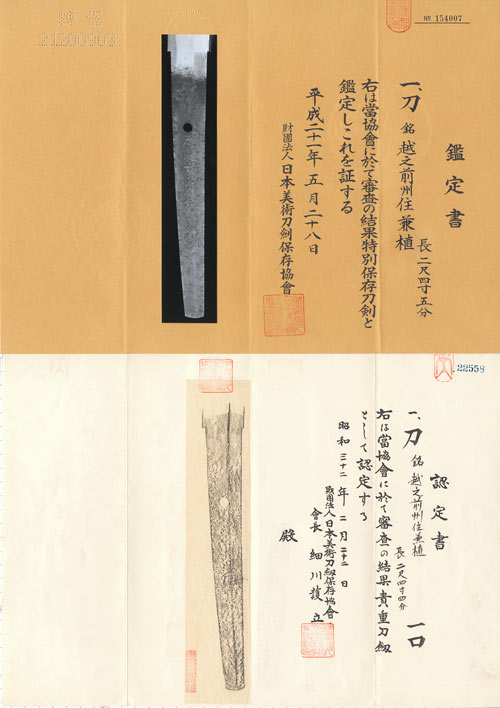 特保
№ 154007
鑑定書
一、刀 銘 越之前州住兼植
長二尺四寸五分
右は當協會に於て審査の結果特別保存刀剣と
鑑定しこれを証する
平成二十一年五月二十八日
財團法人日本美術刀剣保存協會
22558
認定書
一、刀 銘 越之前州住兼植 一口
長二尺四寸四分
右は當協會に於て審査の結果貴重刀剱
として認定する
昭和三十二年二月二十二日
財團法人日本美術刀剱保存協會
會長 細川護立
殿